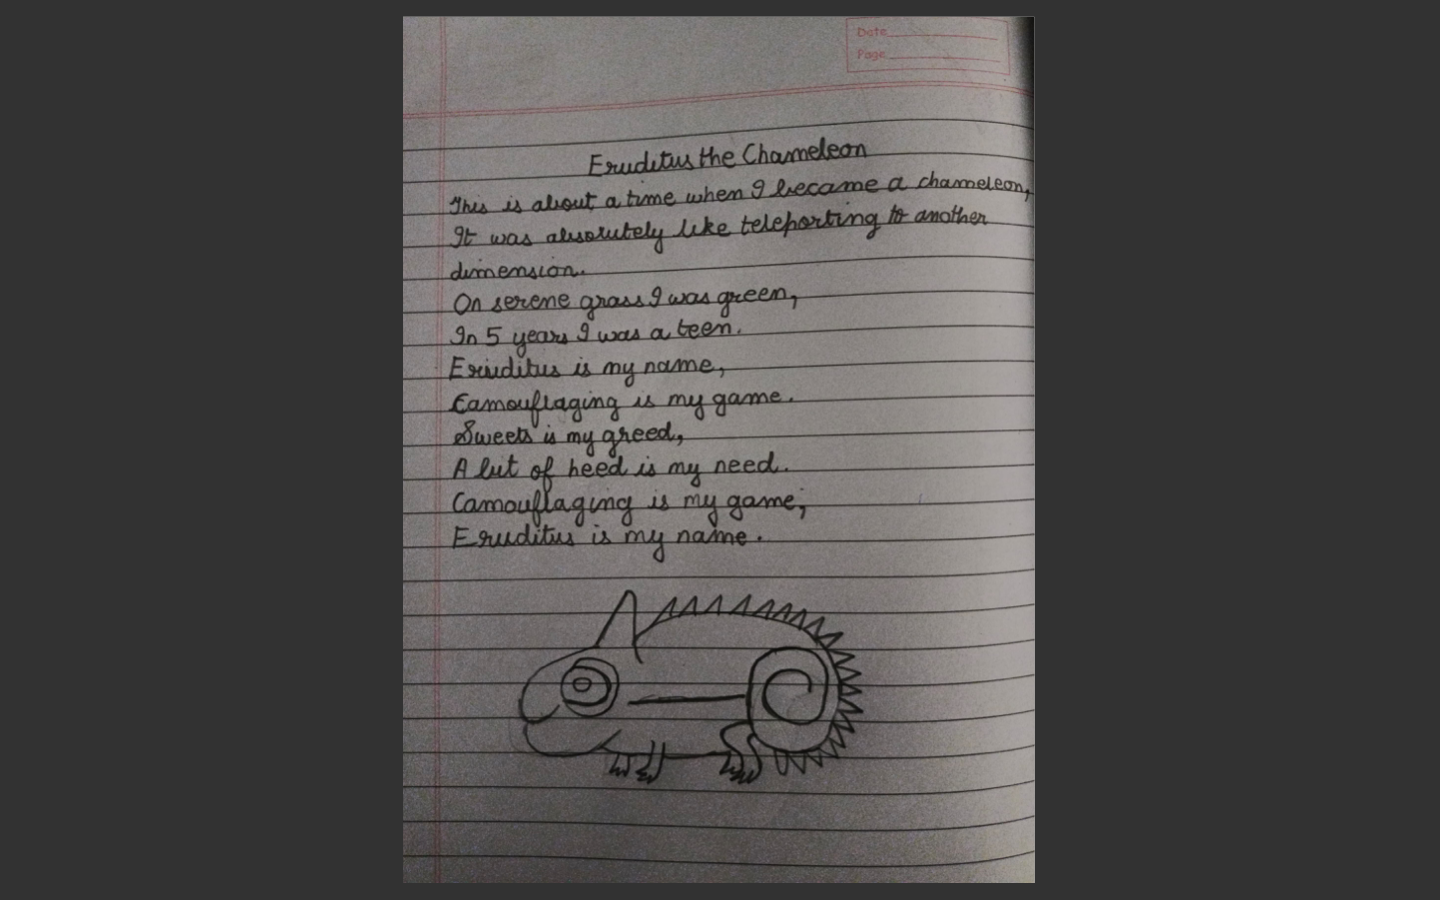 Date
Page
Eruditus the Chameleon
This is about a time when I became a chameleon,
It was absolutely like teleporting to another
dimension.
On serene grass I was green,
In 5 years I was a teen.
Eriuditus is my name,
Camouflaging is my game.
Sweets is my greed,
A bit of heed is my need.
Camouflaging is my game,
Eruditus is my name.